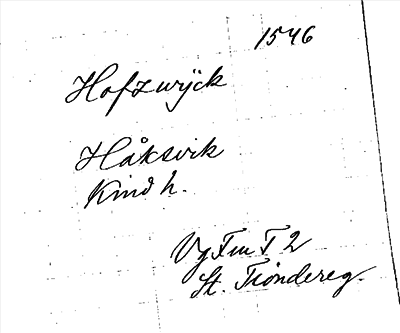 1546
Hofzwijck
Håksvik
Kind h.
Vg Fm T 2
St. Tiondereg.